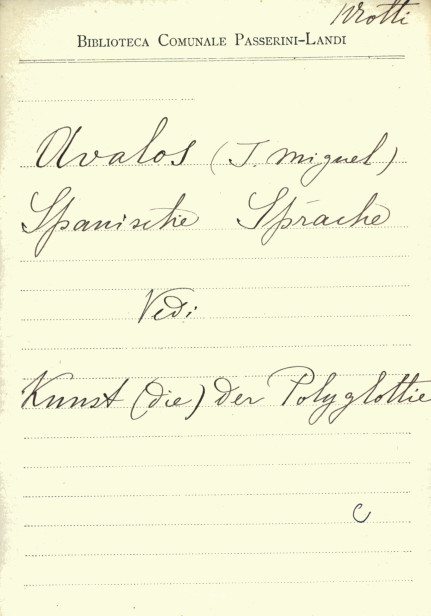 Vrotti
BIBLIOTECA COMUNALE PASSERINI-LANDI
Avalos (J. Miguel)
Spanische Sprache
Vedi
Kunst (die) der Polyglottie
C